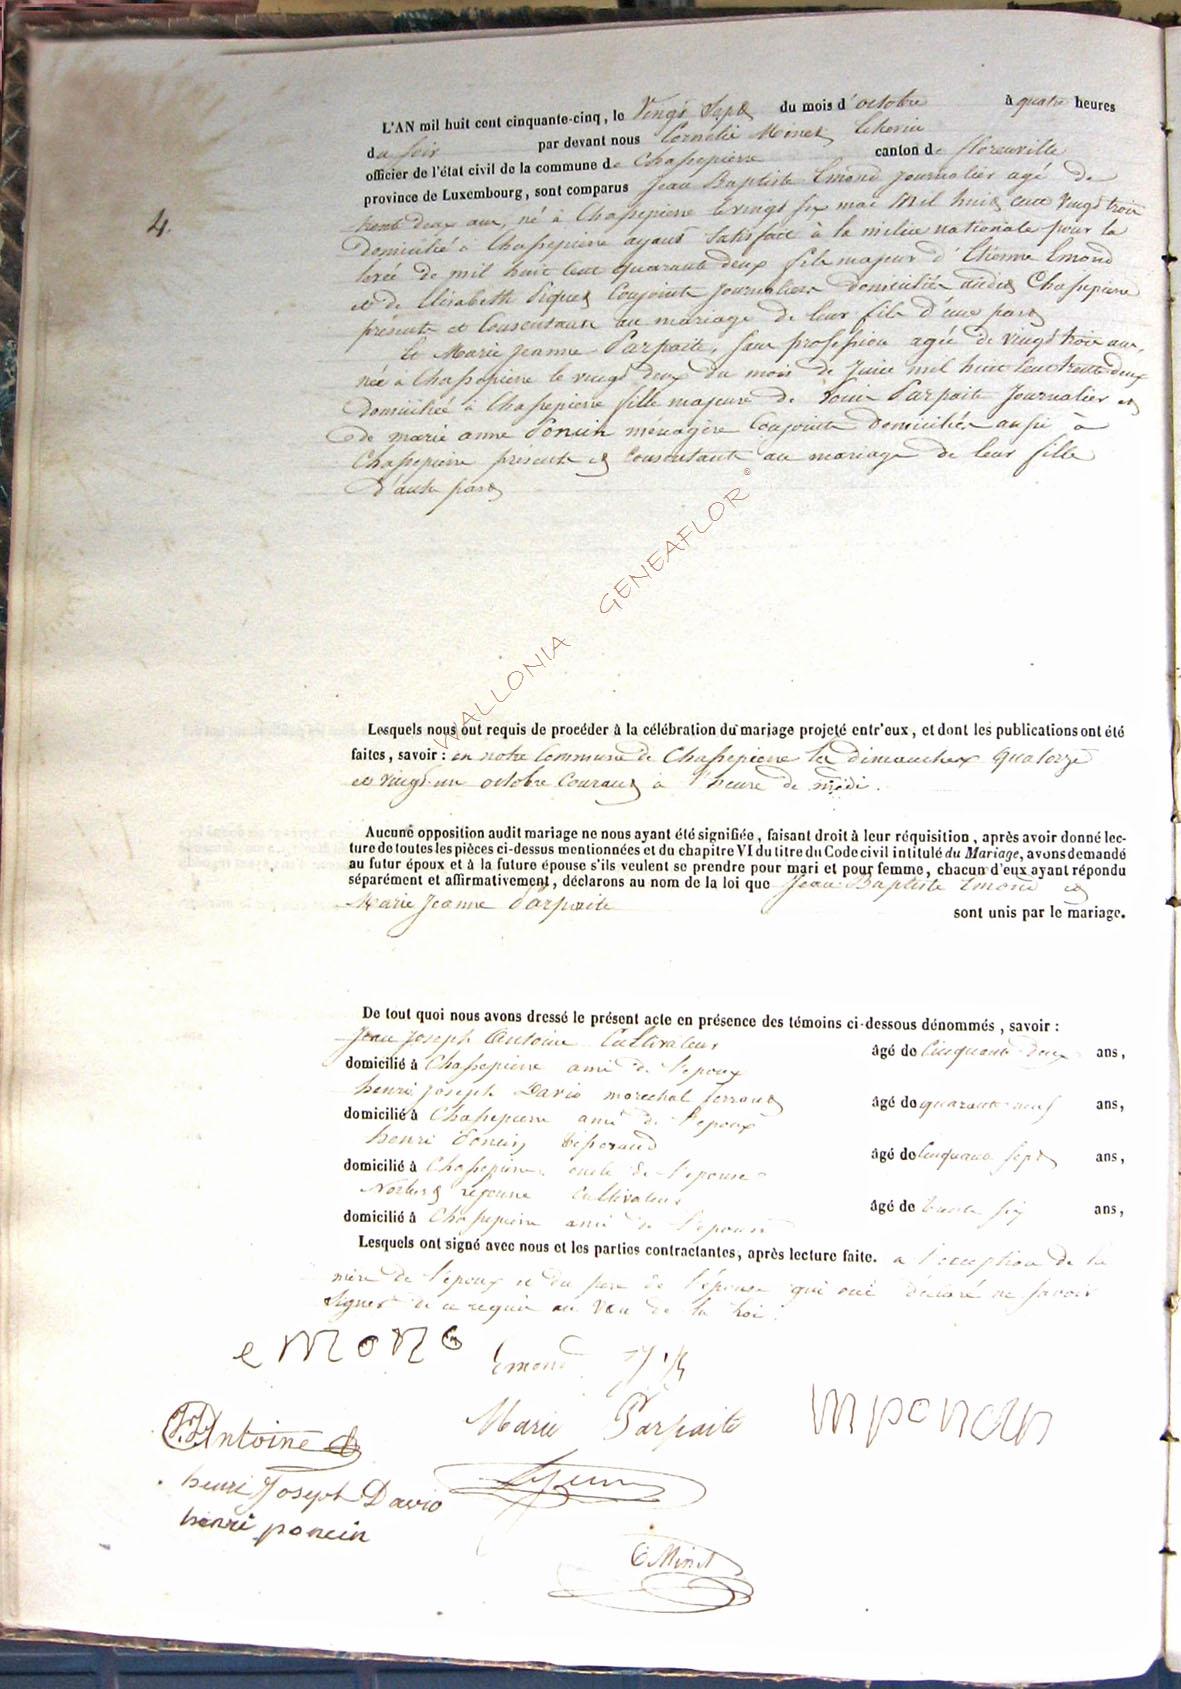 4.
L'AN mil huit cent cinquante-cinq, le Vingt Sept du mois d'octobre à quatre heures
du soir par devant nous Cornélie Minet
officier de l'état civil de la commune de Chassepierre canton de florenville
province de Luxembourg, sont comparus Jean Baptiste Emond journalier agé de
trente deux ans, né à Chassepierre le vingt six mai Mil huit cent vingt trois
domicilié à Chassepierre ayant satisfait à la milice nationale pour la
levée de mil huit cent quarante deux fils majeur d'Etienne Emond
et de Elisabeth Piquet Conjoints journaliers domiciliés audit Chassepierre
présents et Consentants au mariage de leur fils d'une part
Et Marie Jeanne Parpaite, sans profession agée de vingt trois ans,
née à Chassepierre le vingt deux du mois de Juin mil huit cent trente deux
domiciliée à Chassepierre fille majeure de Louis Parpaite Journalier et
de marie anne Poncin menagère Conjoints domiciliés aussi à
Chassepierre présents et consentants au mariage de leur fille
d'autre part
WALLONIA GENEAFLOR ©
Lesquels nous ont requis de procéder à la célébration du mariage projeté entr'eux, et dont les publications ont été
faites, savoir : en notre Commune de Chassepierre les dimanches quatorze
et vingt-un octobre Courant à l'heure de midi.
Aucune opposition audit mariage ne nous ayant été signifiée, faisant droit à leur réquisition, après avoir donné lec-
ture de toutes les pièces ci-dessus mentionnées et du chapitre VI du titre du Code civil intitulé du Mariage, avons demandé
au futur époux et à la future épouse s'ils veulent se prendre pour mari et pour femme, chacun d'eux ayant répondu
séparément et affirmativement, déclarons au nom de la loi que Jean Baptiste Emond et
Marie Jeanne Parpaite sont unis par le mariage.
De tout quoi nous avons dressé le présent acte en présence des témoins ci-dessous dénommés, savoir :
Jean Joseph Antoine Cultivateur âgé de Cinquante deux ans,
domicilié à Chassepierre ami de l'epoux
henri joseph Davio marechal ferrant âgé de quarante neuf ans,
domicilié à Chassepierre ami de l'epoux
henri Poncin tisserand âgé de Cinquante sept ans,
domicilié à Chassepierre oncle de l'epouse
Norbert Lejeune Cultivateur âgé de trente six ans,
domicilié à Chassepierre ami de l'epouse
Lesquels ont signé avec nous et les parties contractantes, après lecture faite. a l'exception de la
mère de l'epoux et du pere de l'épouse qui ont déclaré ne savoir
signer de ce requis au Vœu de la Loi.
emond
Emond
J.J. Antoine
Marie Parpaite
mponcin
henri Joseph Davio
Lejeune
henri poncin
C Minet